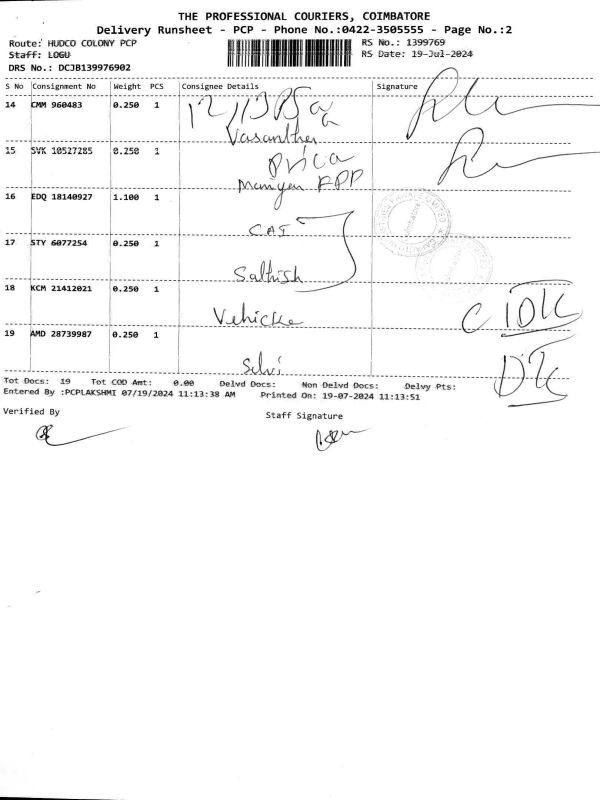 THE PROFESSIONAL COURIERS, COIMBATORE
Delivery Runsheet - PCP - Phone No.:0422-3505555 - Page No.:2
Route: HUDCO COLONY PCP
RS No.: 1399769
Staff: LOGU
RS Date: 19-Jul-2024
DRS No.: DCJB139976902
S No Consignment No Weight PCS Consignee Details Signature
14 CMM 960483 0.250 1
15 SVK 10527285 0.250 1
16 EDQ 18140927 1.100 1
CAI
17 STY 6077254 0.250 1
Sathish
18 KCM 21412021 0.250 1
19 AMD 28739987 0.250 1
Selvi
Tot Docs: 19 Tot COD Amt: 0.00 Delvd Docs: Non Delvd Docs: Delvy Pts:
Entered By :PCPLAKSHMI 07/19/2024 11:13:38 AM Printed On: 19-07-2024 11:13:51
Verified By
Staff Signature